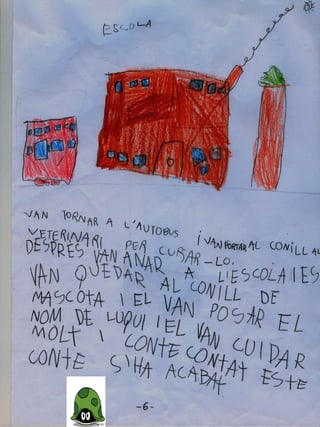 ESCOLA
VAN TORNAR A L'AUTOBUS I VAN PORTAR AL CONILL AL
VETERINARI PER CURAR-LO.
DESPRÉS VAN ANAR A L'ESCOLA I ES
VAN QUEDAR AL CONILL DE
MASCOTA I EL VAN POSAR EL
NOM DE LUQUI I EL VAN CUIDAR
MOLT I CONTE CONTAT ESTE
CONTE S'HA ACABAT
-6-